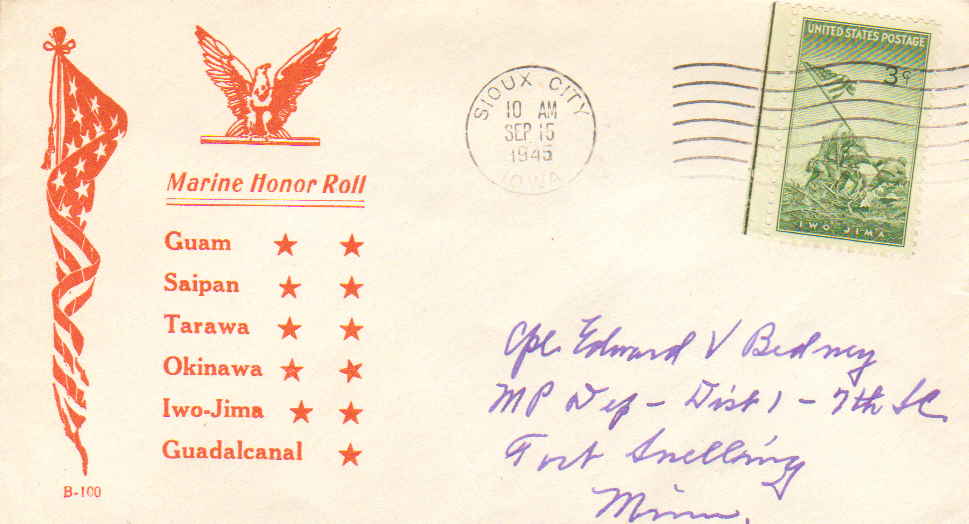 Marine Honor Roll
Guam
Saipan
Tarawa
Okinawa
Iwo-Jima
Guadalcanal
B-100
SIOUX CITY
10 AM
SEP 15
1945
IOWA
UNITED STATES POSTAGE
3¢
IWO JIMA
Cpl. Edward V Bedney
MP Dep - Dist 1 - 7th SC
Fort Snelling
Minn.